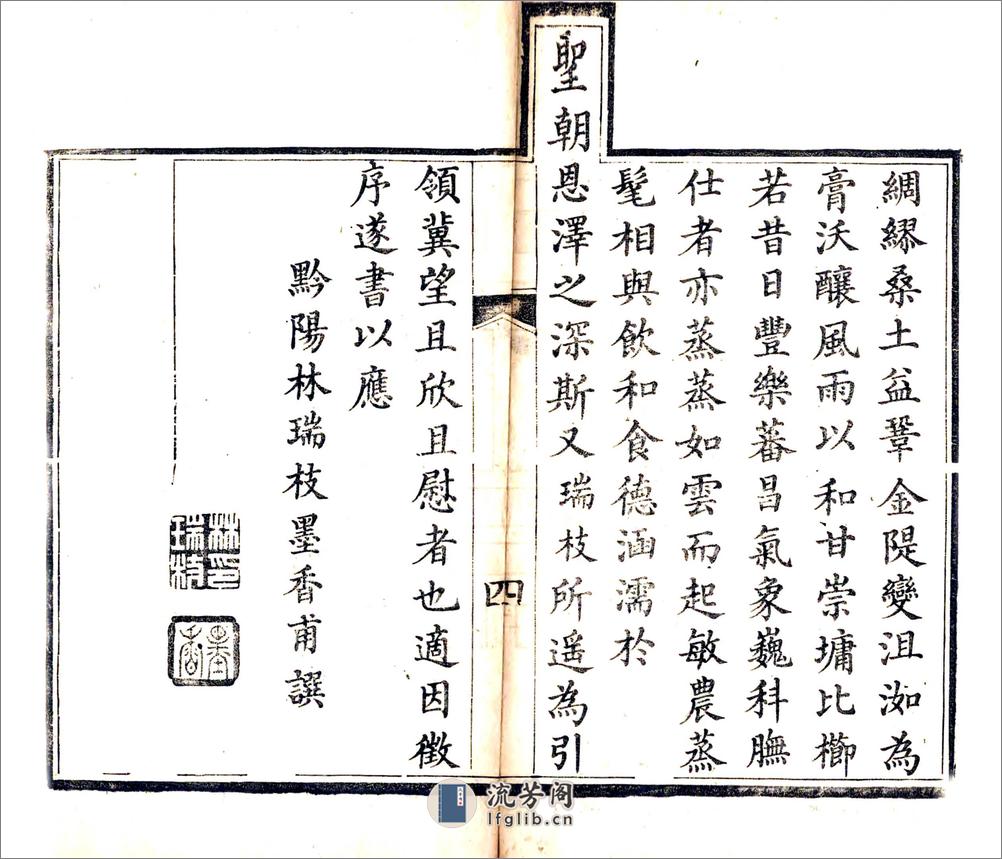 綢繆桑土益鞏金隄變沮洳為
膏沃釀風雨以和甘崇墉比櫛
若昔日豐樂蕃昌氣象巍科膴
仕者亦蒸蒸如雲而起敏農蒸
髦相與飲和食德涵濡於
聖朝恩澤之深斯又瑞枝所遥為引
四
領冀望且欣且慰者也適因徵
序遂書以應
黔陽林瑞枝墨香甫譔
林印瑞枝
墨香
流芳阁
lfglib.cn